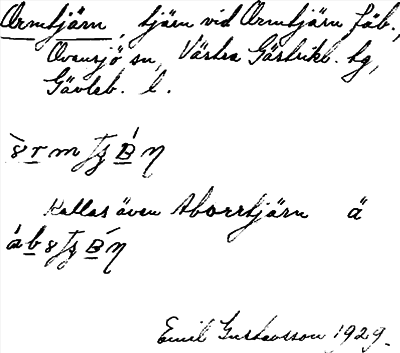 Ormtjärn, tjärn vid Ormtjärn fäb.,
Ovansjö sn, Västra Gästrikl. tg,
Gävleb. l.
Kallas även Aborrtjärn ä
Emil Gustavsson 1929.